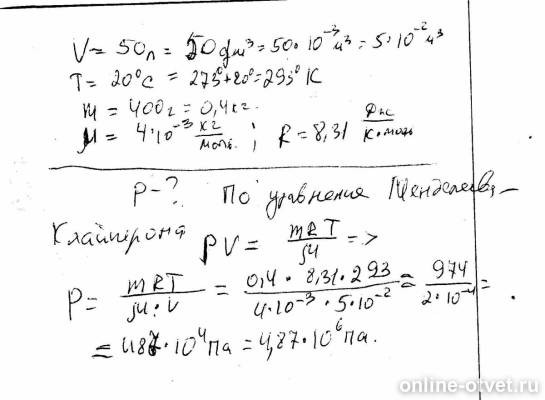 V = 50л = 50 дм³ = 50 · 10⁻³ м³ = 5 · 10⁻² м³
T = 20°C = 273° + 20° = 293° K
m = 400г = 0,4 кг.
μ = 4 · 10⁻³ кг/моль ; R = 8,31 Дж/К·моль
P - ? По уравнения Менделеева -
Клайперона PV = mRT/μ =>
P = mRT/μ · V = 0,4 · 8,31 · 293/4 · 10⁻³ · 5 · 10⁻² = 974/2 · 10⁻⁴ =
= 487 · 10⁴ Па = 4,87 · 10⁶ Па.
online-otvet.ru